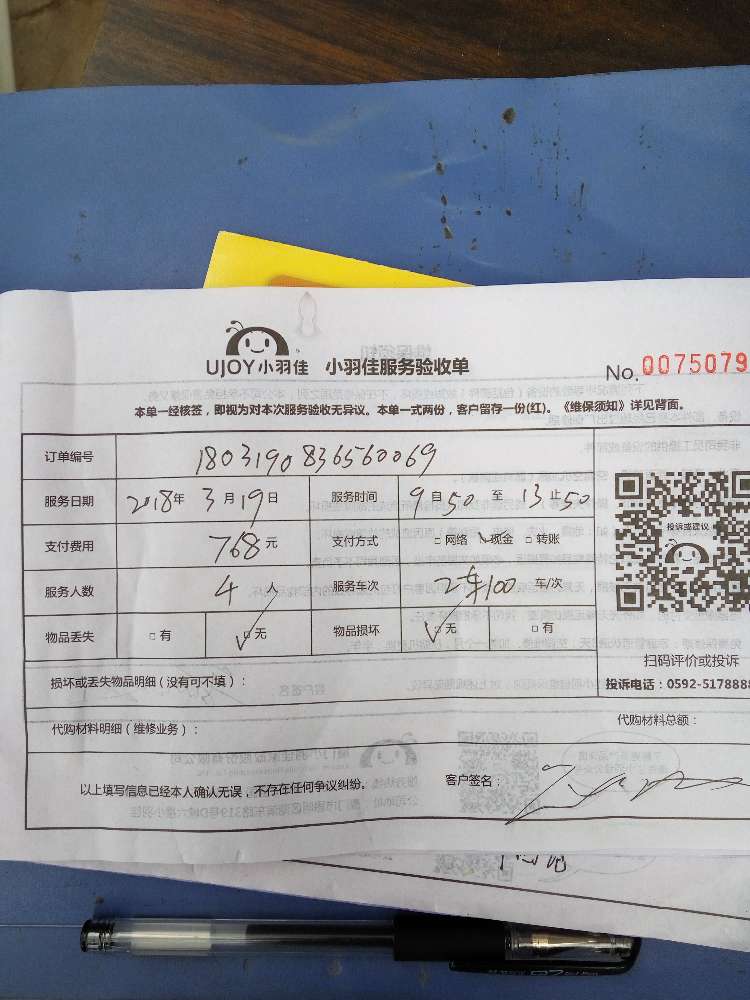 UJOY小羽佳 小羽佳服务验收单
No. 0075079
本单一经核签，即视为对本次服务验收无异议。本单一式两份，客户留存一份(红)。《维保须知》详见背面。
订单编号 1803190836560069
服务日期 2018年 3月19日 服务时间 9自50至13止50
支付费用 768元 支付方式 □网络 □现金 □转账
服务人数 4人 服务车次 2车100 车/次
物品丢失 □有 □无 物品损坏 □无 □有
投诉或建议
扫码评价或投诉
投诉电话：0592-5178888
损坏或丢失物品明细（没有可不填）：
代购材料明细（维修业务）：
代购材料总额：
以上填写信息已经本人确认无误，不存在任何争议纠纷。
客户签名：